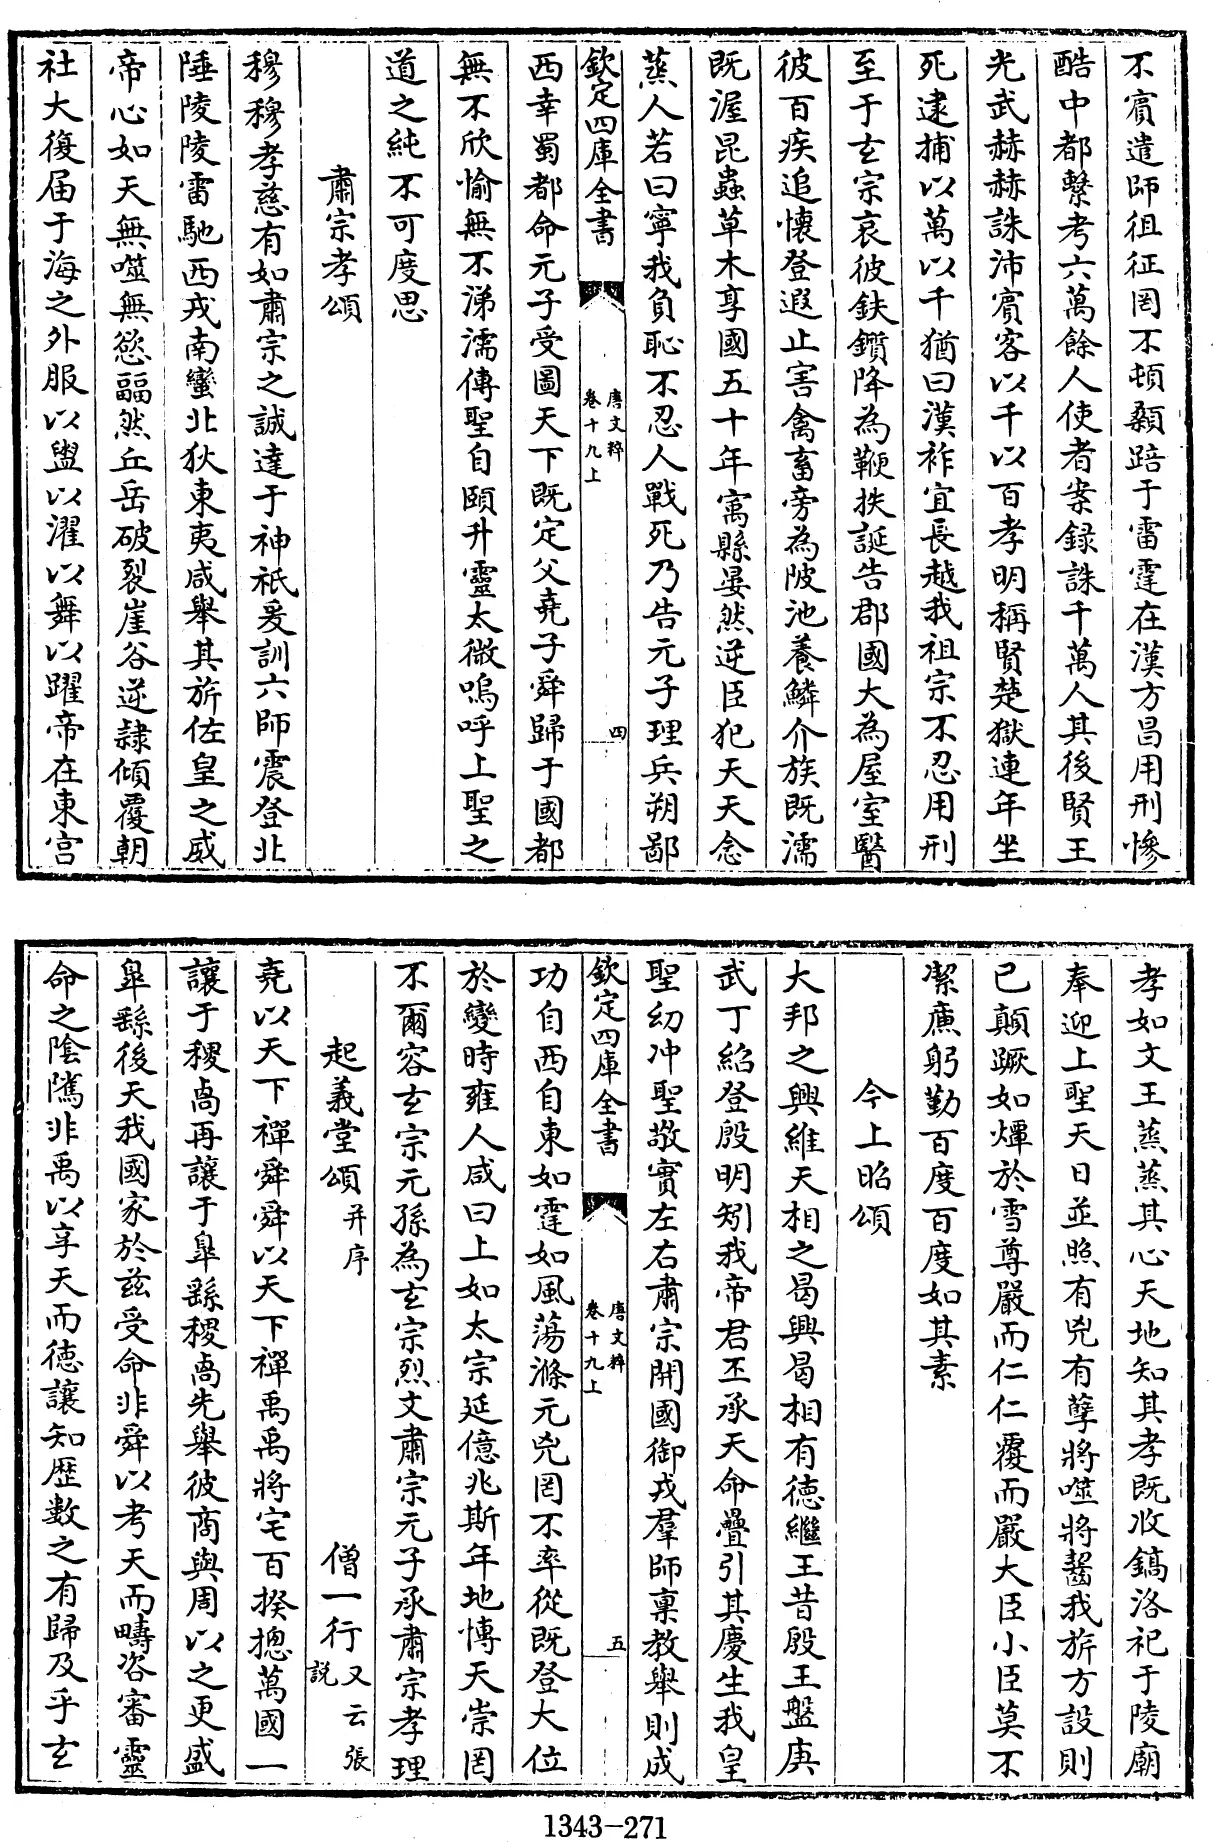 不賔遣師徂征罔不頓顙踣于雷霆在漢方昌用刑慘
酷中都繫考六萬餘人使者案録誅千萬人其後賢王
光武赫赫誅沛賔客以千以百孝明稱賢楚獄連年坐
死逮捕以萬以千猶曰漢祚宜長越我祖宗不忍用刑
至于玄宗哀彼鈇鑕降為鞭抶誕告郡國大為屋室醫
彼百疾追懷登遐止害禽畜旁為陂池養鱗介族既濡
既渥昆蟲草木享國五十年寓縣晏然逆臣犯天天念
蒸人若曰寧我負恥不忍人戰死乃告元子理兵朔鄙
欽定四庫全書
唐文粹
卷十九上
四
西幸蜀都命元子受圖天下既定父堯子舜歸于國都
無不欣愉無不涕濡傳聖自頤升靈太微嗚呼上聖之
道之純不可度思
肅宗孝頌
穆穆孝慈有如肅宗之誠達于神祇爰訓六師震登北
陲陵陵雷馳西戎南蠻北狄東夷咸舉其旂佐皇之威
帝心如天無噬無慾踾然丘岳破裂崖谷逆隸傾覆朝
社大復届于海之外服以盥以濯以舞以躍帝在東宫
孝如文王蒸蒸其心天地知其孝既收鎬洛祀于陵廟
奉迎上聖天日並照有兇有孽將噬將齧我旂方設則
已顛蹶如燀於雪尊嚴而仁仁覆而嚴大臣小臣莫不
潔亷躬勤百度百度如其素
今上昭頌
大邦之興維天相之曷興曷相有德繼王昔殷王盤庚
武丁紹登殷明矧我帝君丕承天命疊引其慶生我皇
聖幼冲聖敬實左右肅宗開國御戎羣師稟教舉則成
欽定四庫全書
唐文粹
卷十九上
五
功自西自東如霆如風蕩滌元兇罔不率從既登大位
於變時雍人咸曰上如太宗延億兆斯年地慱天崇罔
不爾容玄宗元孫為玄宗烈文肅宗元子承肅宗孝理
起義堂頌并序 僧一行又云張説
堯以天下禪舜舜以天下禪禹禹將宅百揆揔萬國一
讓于稷卨再讓于臯繇稷卨先舉彼商與周以之更盛
臯繇後天我國家於兹受命非舜以考天而疇咨審靈
命之陰隲非禹以享天而德讓知歴數之有歸及乎玄
1343-271